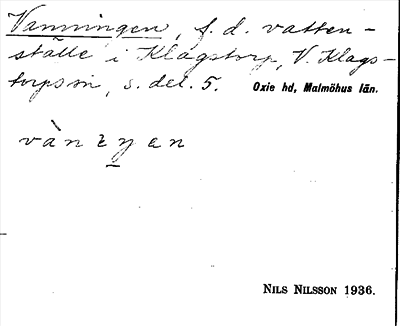 Vanningen, f. d. vatten-
ställe i Klagstorp, V. Klags-
torps sn, s. del. 5. Oxie hd, Malmöhus län.
NILS NILSSON 1936.